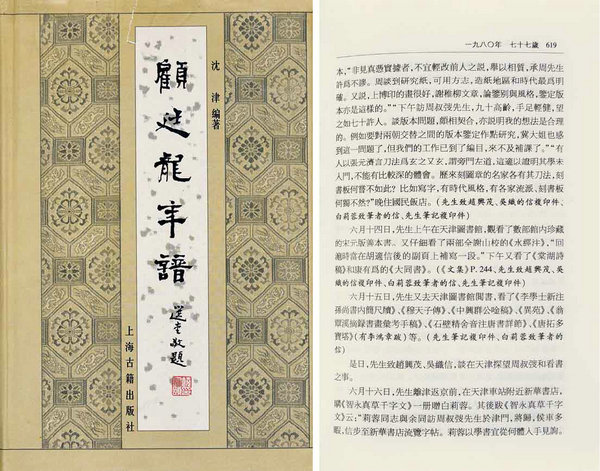 沈津 編著
顧廷龍年譜
選堂敬題
上海古籍出版社
一九八〇年 七十七歲 619
本,“非見真憑實據者,不宜輕改前人之說,舉以相質,承周先生
許爲不謬。周談到研究紙,可用方志,造紙地區和時代最爲明
確。又説,上博印的畫很好,謝稚柳文章,論鑒別與風格,鑒定版
本亦是這樣的。”“下午訪周叔弢先生,九十高齡,手足輕健,望
之如七十許人。談版本問題,頗相契合,亦説明我的想法是合理
的。例如要對兩朝交替之間的版本鑒定作點研究,冀大姐也感
到這一問題了,但我們的工作已到了編目,來不及補課了。”“有
人以張元濟言刀法爲玄之又玄,謂旁門左道,這適以證明其學未
入門,不能有比較深的體會。歷來刻圖章的名家各有其刀法,刻
書板何嘗不如此?比如寫字,有時代風格,有各家流派、刻書板
何獨不然?”晚住國民飯店。(先生致趙興茂、吳織的信複印件、
白莉蓉致筆者的信、先生筆記複印件)
六月十四日,先生上午在天津圖書館,觀看了數部館内珍藏
的宋元版善本書。又仔細看了兩部全謝山校的《水經注》,“回
滬時當在胡適信後的副頁上補寫一段。”下午又看了《棠湖詩
稿》和康有爲的《大同書》。(《文集》P.244、先生致趙興茂、吳
織的信複印件、白莉蓉致筆者的信、先生筆記複印件)
六月十五日,先生又去天津圖書館閲書,看了《李學士新注
孫尚書内簡尺牘》、《穆天子傳》、《中興群公吟稿》、《異苑》、《翁
覃溪摘録書畫彙考手稿》、《石壁精舍音注唐書詳節》、《唐拓多
寶塔》(有李鴻章跋)等。(先生筆記複印件、白莉蓉致筆者的
信)
是日,先生致趙興茂、吳織信,談在天津探望周叔弢和看書
之事。
六月十六日,先生離津返京前,在天津車站附近新華書店,
購《智永真草千字文》一册贈白莉蓉。其後跋《智永真草千字
文》云:“莉蓉同志與余同訪周叔弢先生於津門,將歸,候車多
暇,信步至新華書店流覽字帖。莉蓉以學書宜從何體入手見詢。